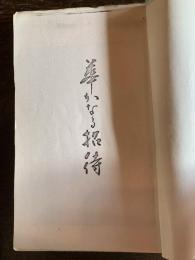 華かなる招待